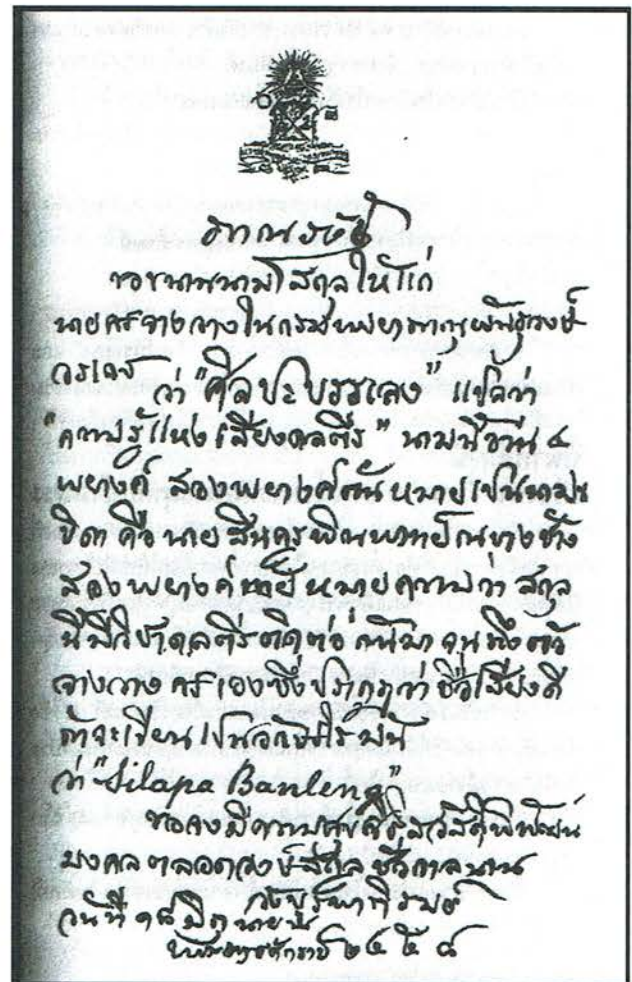 ขอขนานนามสกุลให้แก่
นายศร จางวางในกรมพระยาภาณุพันธุวงษ์
วรเดช ว่า "ศิลปะบรรเลง" แปลว่า
"ความรู้แห่งเสียงดุลตีร" นามนี้อ่าน ๔
พยางค์ สองพยางค์ต้นหมายเป็นนาม
บิดา คือ นายสิน ครูพิณพาทย์ ณ บางช้าง
สองพยางค์ หมายความว่า สกุล
นี้มีวิชาดุลตีรติดต่อกันมาจนถึงตัว
จางวางศรเองซึ่งปรากฏว่าชื่อเสียงดี
ถ้าจะเขียนเป็นอักษรโรมัน
ว่า "Silapa Banleng"
ขอจงมีความศุขสวัสดิ์พิพัฒน
มงคลตลอดวงษ์สกุลชั่วกาลนาน
วันที่ มิถุนายน
พระพุทธศักราช ๒๔๕๘